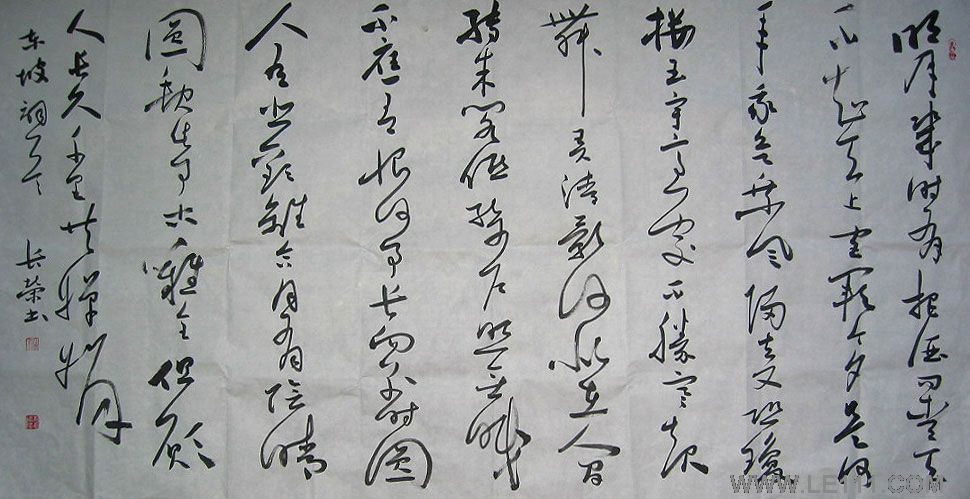 明月几时有把酒问青天
不知天上宫阙今夕是何
年我欲乘风归去又恐琼
楼玉宇高处不胜寒起
舞弄清影何似在人间
转朱阁低绮户照无眠
不应有恨何事长向别时圆
人有悲欢离合月有阴晴
圆缺此事古难全但愿
人长久千里共婵娟
东坡词一首
长荣书